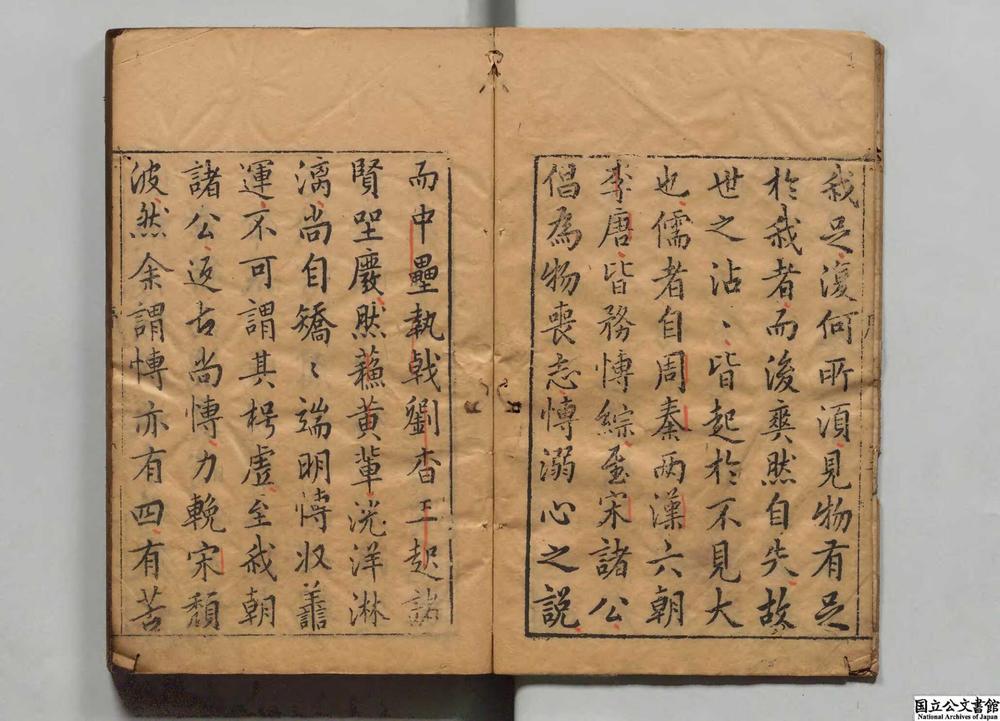 我足復何所須見物有足
於我者而後爽然自失故
世之沾〻皆起於不見大
也儒者自周秦兩漢六朝
李唐皆務博綜至宋諸公
倡為物喪志博溺心之說
而中壘執戟劉杳王起諸
賢坐廢然蘇黃輩洸洋淋
漓尚自矯〻端明恃收
運不可謂其枵虛至我朝
諸公返古尚博力輓宋頹
波然余謂博亦有四有苦
序
国立公文書館
National Archives of Japan